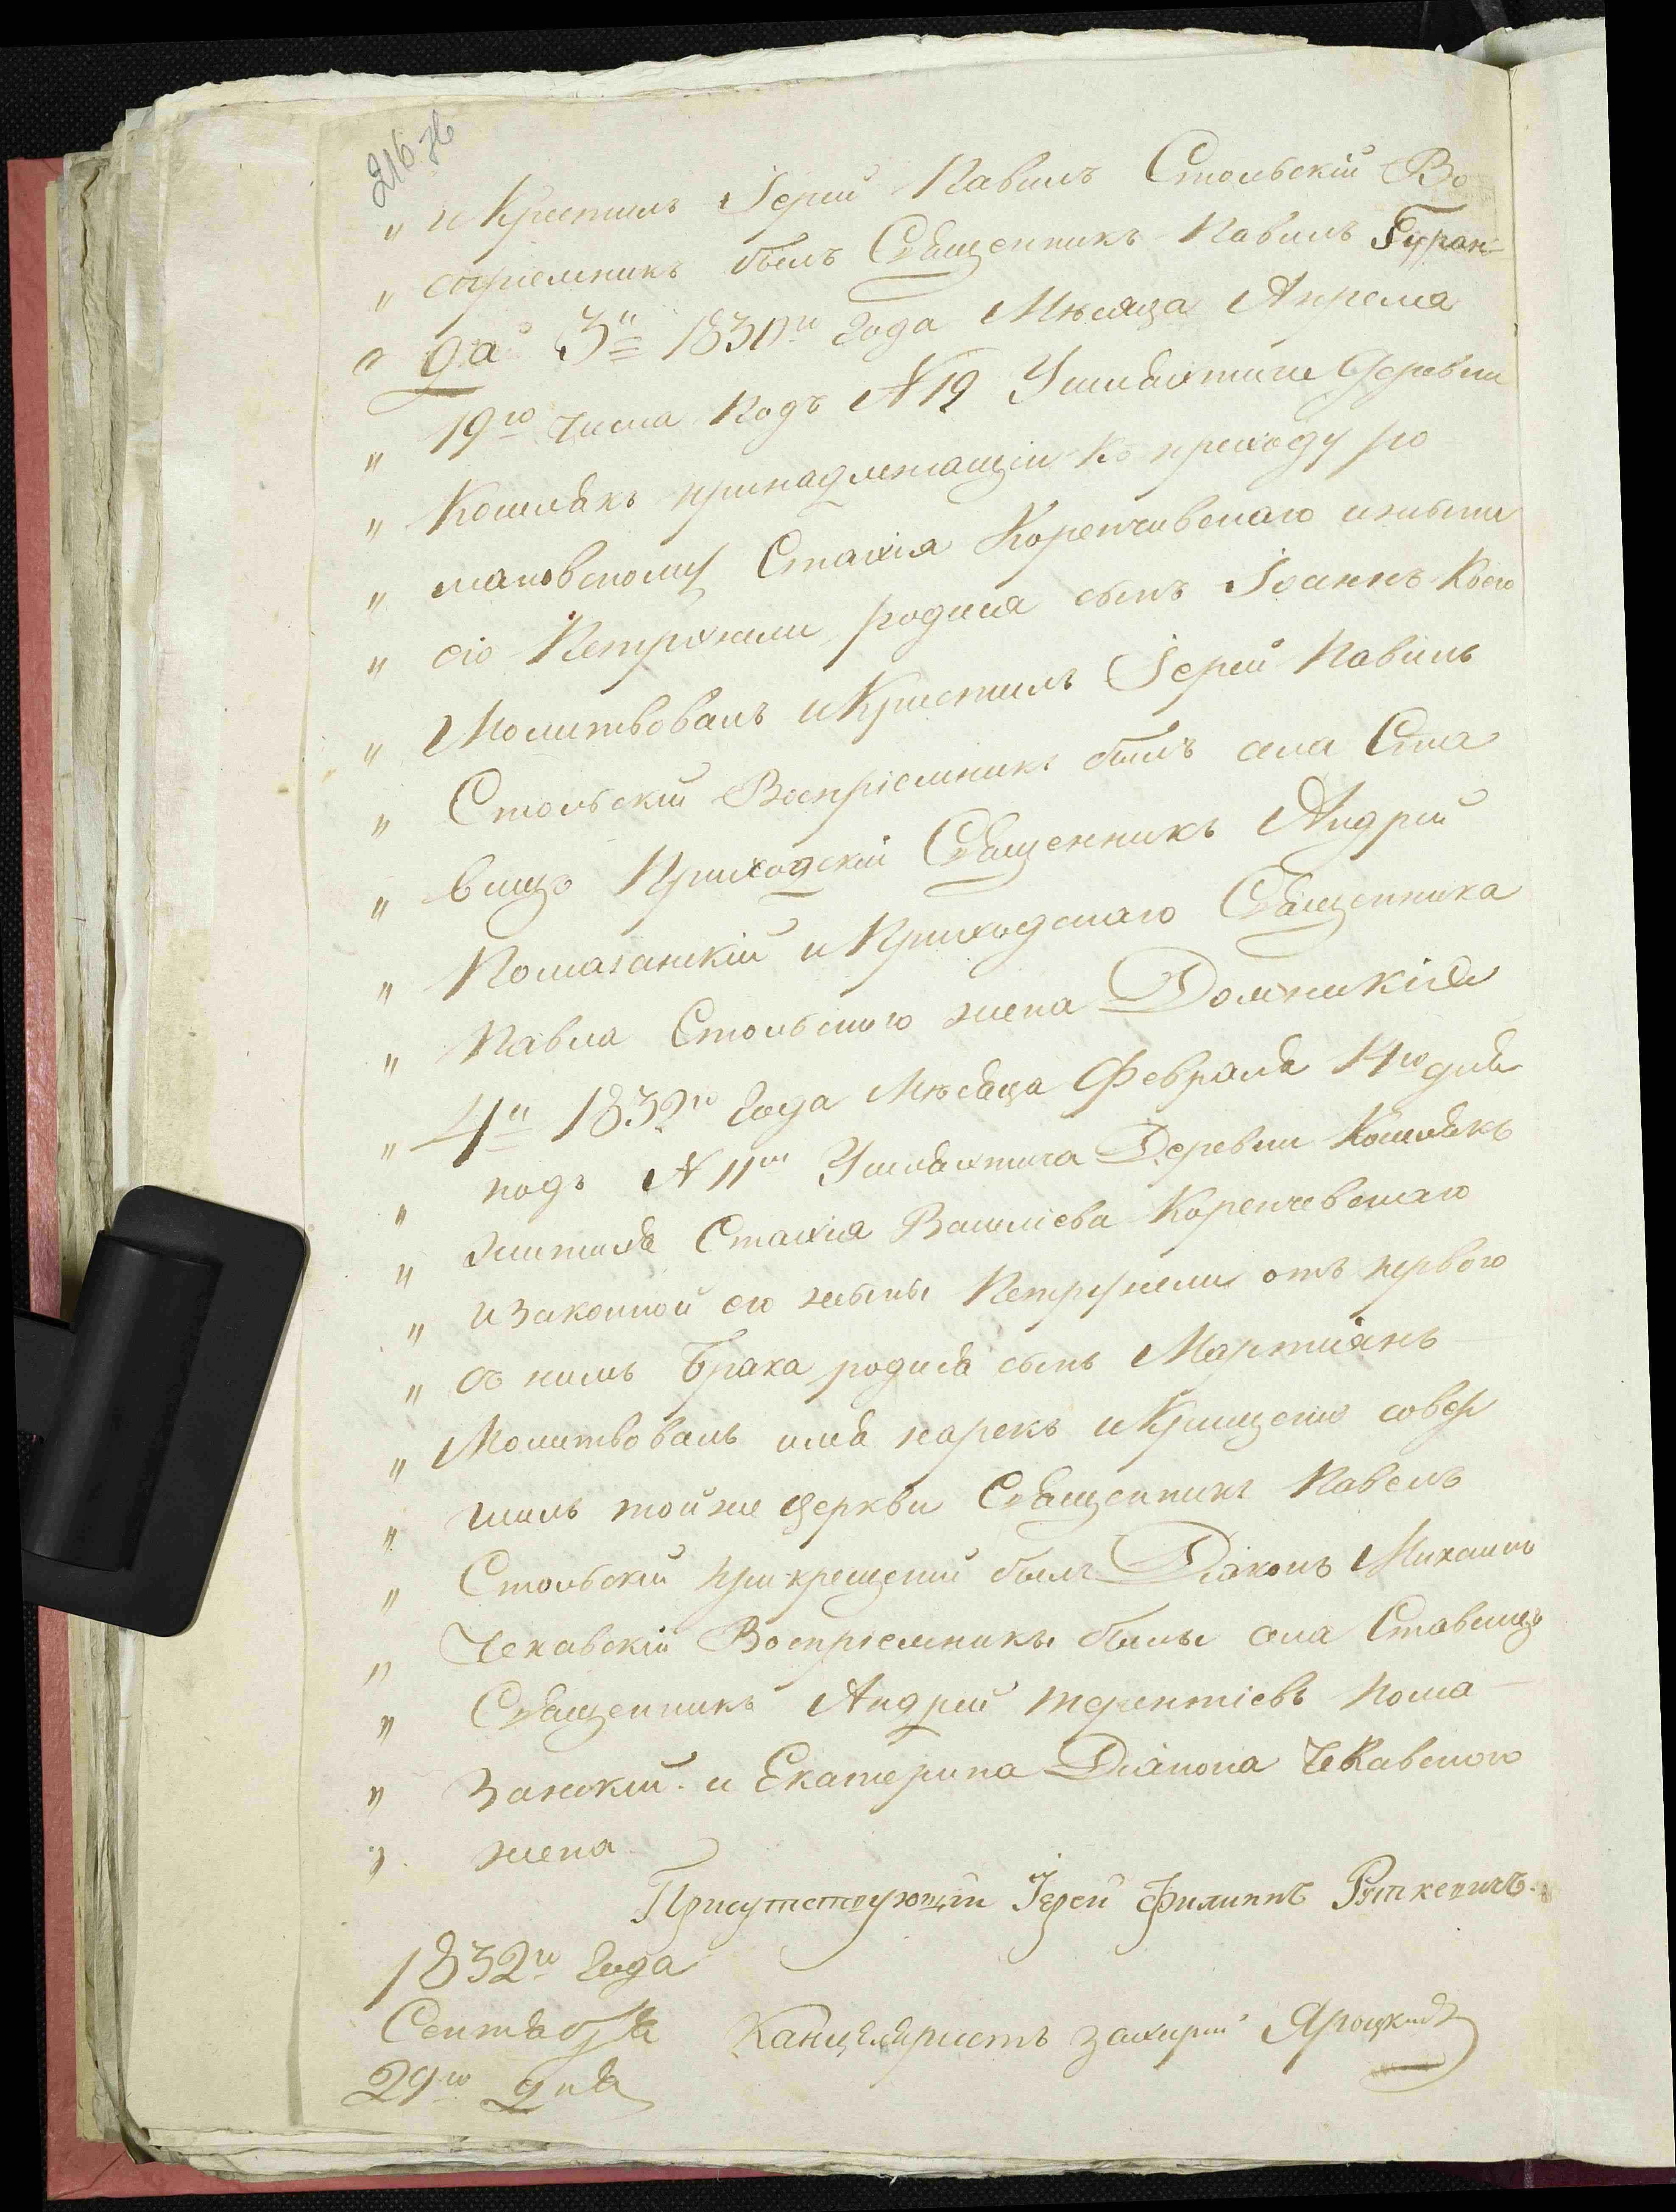 216 Н
„ и Крестилъ Іерей Павилъ Стольскій Во
„ спріемникъ былъ Священникъ Павилъ Гуран=
„ да 3й 1830го Года Мѣсяца Апреля
„ 19го Числа Подъ N 19 У шляхтича Деревни
„ Кошлякъ принадлежащій къ приходу ро
„ мановскому Стахія Коренчевскаго и жены
„ его Петронели родился сынъ Іоаннъ Коего
„ Молитвовалъ и Кристилъ Іерей Павилъ
„ Стольскій Воспріемникъ былъ села Ста
„ вищъ Приходскій Священникъ Андрій
„ Помазанскій и Приходскаго Священника
„ Павла Стольского жена Домникія
„ 4й 1832го Года Мѣсяца Февраля 14го дня
„ подъ N 11м У шляхтича Деревни Кошлякъ
„ жителя Стахія Василіева Коренчевскаго
„ и Законной его жены Петрунели отъ первого
„ съ нимъ Брака родился сынъ Мартіянъ
„ Молитвовалъ имя нарекъ и Крищение совер
„ шилъ той же Церкви Священникъ Павелъ
„ Стольскій при крещеніи былъ Діяконъ Михаилъ
„ Чекавскій Воспріемники были села Ставищъ
„ Священникъ Андрей Терентіевъ Пома
„ Занскій. и Екатерина Діакона Чекавского
„ жена
Присутствующій Іерей Филиппъ
1832го Года
Сентября Канцеляристъ Захарій Яроцкій
29го дня